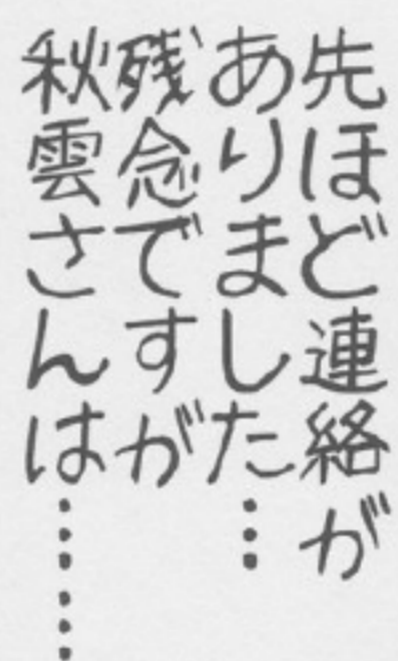 先ほど連絡が
ありました…
残念ですが
秋雲さんは……